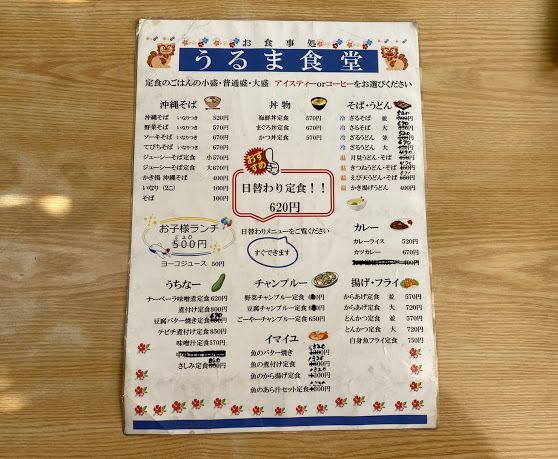 お食事処
うるま食堂
定食のごはんの小盛・普通盛・大盛 アイスティーorコーヒーをお選びください
沖縄そば
沖縄そば いなりつき 520円
野菜そば いなりつき 570円
ソーキそば いなりつき 670円
てびちそば いなりつき 670円
ジューシーそば定食 小570円
ジューシーそば定食 大670円
かき揚 沖縄そば 400円
いなり（2こ） 100円
そば 100円
丼物
海鮮丼定食 570円
まぐろ丼定食 670円
かつ丼定食 570円
おすすめ
日替わり定食！！
620円
日替わりメニューをご覧ください
すぐできます
そば・うどん
冷 ざるそば 並
冷 ざるそば 大
冷 ざるうどん 並
冷 ざるうどん 大
温 月見うどん・そば
温 きつねうどん・そば
温 えび天うどん・そば
温 かき揚げうどん 400円
お子様ランチ
500円
ヨーコジュース 50円
カレー
カレーライス 520円
カツカレー 670円
うちなー
ナーベーラ味噌煮定食 620円
煮付け定食 800円
豆腐バター焼き定食
テビチ煮付け定食 850円
味噌汁定食 570円
さしみ定食
チャンプルー
野菜チャンプルー定食
豆腐チャンプルー定食
ごーやーチャンプルー定食 650円
イマイユ
魚のバター焼き
魚の煮付け定食
魚のから揚げ定食
魚のあら汁セット定食
揚げ・フライ
からあげ定食 並 570円
からあげ定食 大 720円
とんかつ定食 並 570円
とんかつ定食 大 720円
白身魚フライ定食 750円